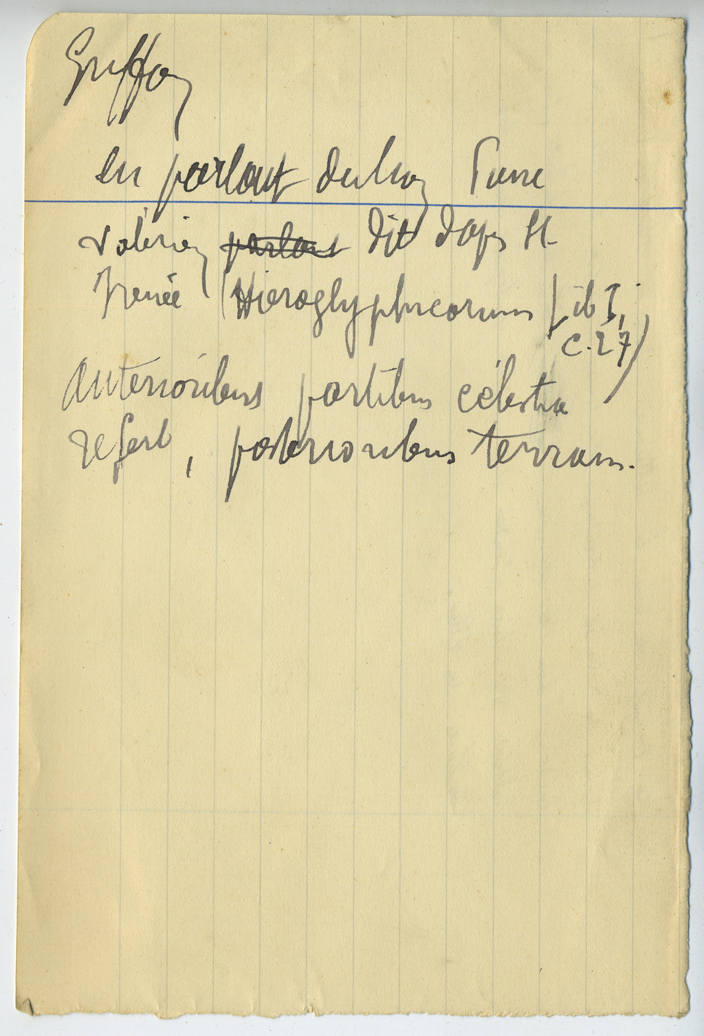 Griffon
en parlant du lion Pierre
Valérien parlant dit d'aprs St.
Irenée (Hieroglyphicorum Lib I,
C. 27)
anterioribus partibus célestia
refert, posterioribus terram.